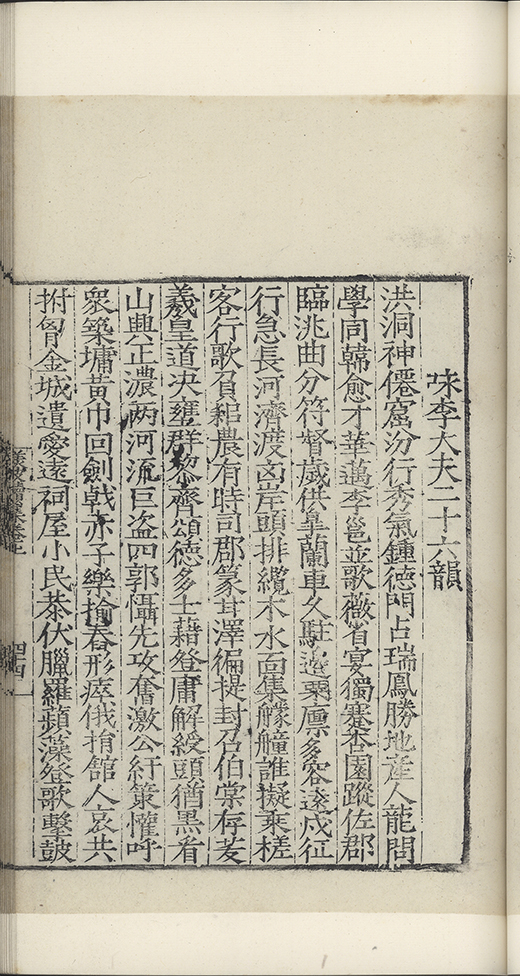 咏李大夫二十六韻
洪洞神僊窟汾行秀氣鍾德門占瑞鳳勝地産人龍問
學同韓愈才華邁李邕並歌薇省宴獨騫杏園蹤佐郡
臨洮曲分符督歲供臯蘭車久駐邊粟廪多客遠戍征
行急長河濟渡凶岸頭排纜木水面集艨艟誰擬乘槎
客行歌負耜農有時司郡篆甘澤徧提封召伯棠存茇
羲皇道决壅群黎齊頌德多士藉登庸解綬頭猶黑看
山興正濃两河流巨盗四郭懾先攻奮激公紆策懽呼
衆築墉黃巾回劍戟赤子樂揄舂形瘞俄捐館人哀共
拊胷金城遺愛遠祠屋小民恭伏臘羅蘋藻登歌擊鼓